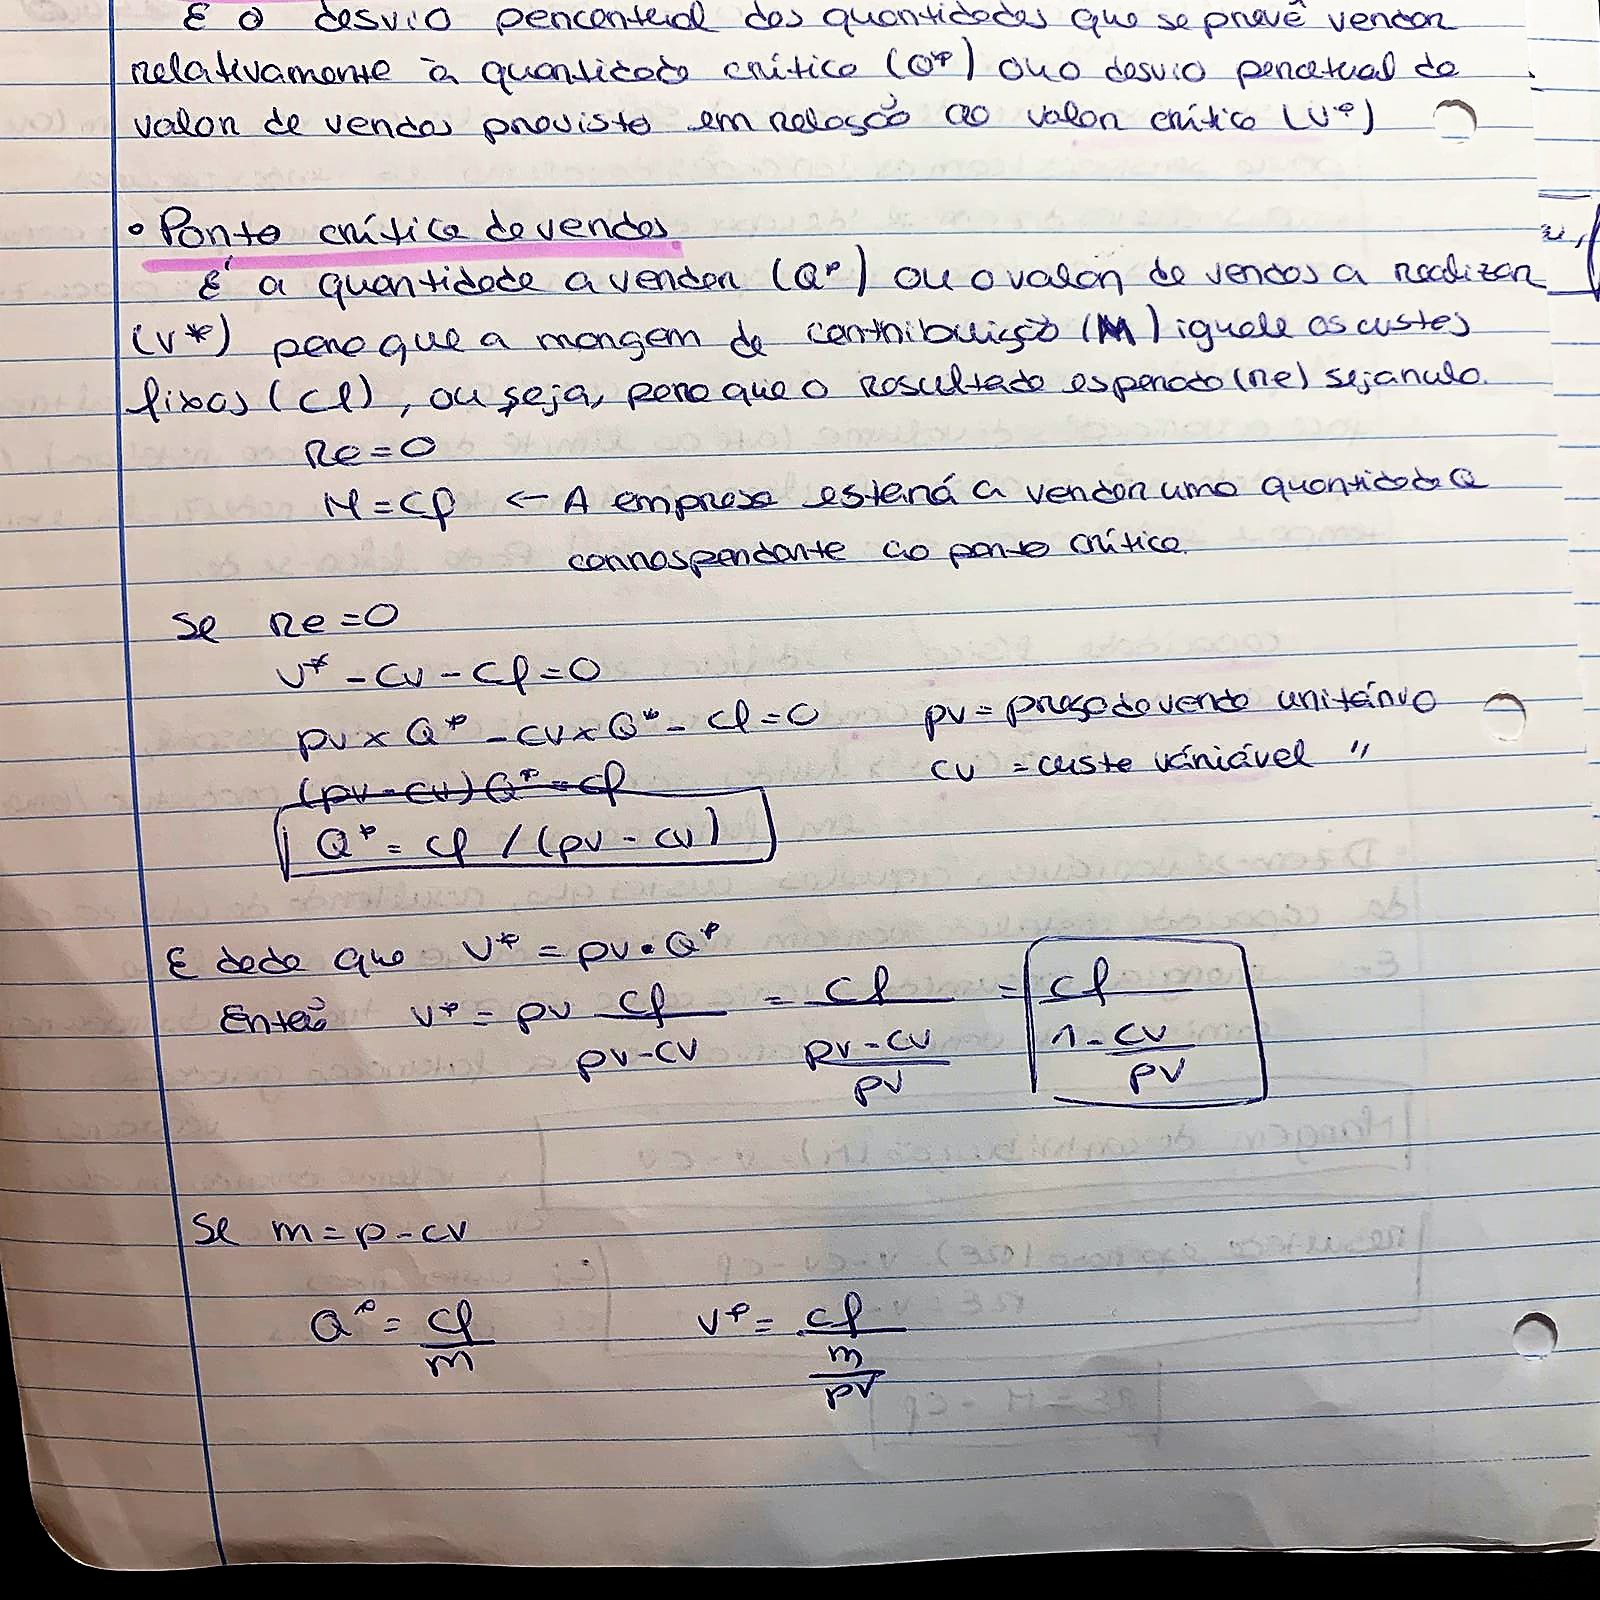 É o desvio percentual das quantidades que se prevê vender
relativamente à quantidade crítica (Q*) ou o desvio percetual do
valor de vendas previsto em relação ao valor crítico (V*)
• Ponto crítico de vendas
É a quantidade a vender (Q*) ou o valor de vendas a realizar
(V*) para que a margem de contribuição (M) iguale os custos
fixos (Cf), ou seja, para que o resultado esperado (Re) seja nulo.
Re = 0
M = Cf ← A empresa estará a vender uma quantidade Q
correspondente ao ponto crítico.
Se Re = 0
V* - CV - Cf = 0
pv x Q* - cv x Q* - Cf = 0 pv = preço de venda unitário
(pv - cv) Q* = Cf cv = custo váriável "
Q* = Cf / (pv - cv)
E dado que V* = pv • Q*
Então V* = pv Cf / (pv - cv) = Cf / ((pv - cv) / pv) = Cf / (1 - cv / pv)
Se m = p - cv
Q* = Cf / m V* = Cf / (m / pv)